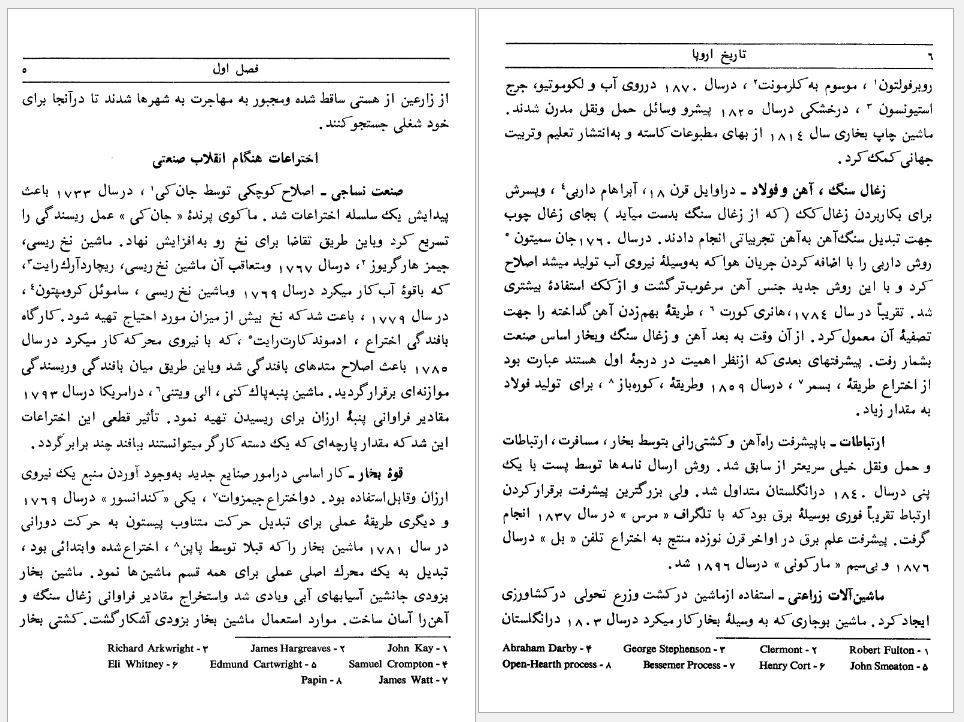 فصل اول ۵
از زارعین از هستی ساقط شده ومجبور به مهاجرت به شهرها شدند تا درآنجا برای
خود شغلی جستجو کنند.
اختراعات هنگام انقلاب صنعتی
صنعت نساجی ـ اصلاح کوچکی توسط جان کی۱ ، در سال ۱۷۳۳ باعث
پیدایش یك سلسله اختراعات شد . ماکوی پرندۀ « جان کی » عمل ریسندگی را
تسریع کرد وباین طریق تقاضا برای نخ رو به افزایش نهاد. ماشین نخ ریسی،
جیمز هارگریوز ۲، درسال ۱۷۶۷ ومتعاقب آن ماشین نخ ریسی، ریچاردآرك رایت۳،
که باقوۀ آب کار میکرد درسال ۱۷۶۹ وماشین نخ ریسی ، ساموئل کرومپتون۴ ،
در سال ۱۷۷۹ ، باعث شد که نخ بیش از میزان مورد احتیاج تهیه شود. کارگاه
بافندگی اختراع ، ادموند کارت رایت۵ ، که با نیروی محرکه کار میکرد در سال
۱۷۸۵ باعث اصلاح متدهای بافندگی شد وباین طریق میان بافندگی وریسندگی
موازنه‌ای برقرارگردید. ماشین پنبه پاك کنی ، الی ویتنی۶ ، درامریکا درسال ۱۷۹۳
مقادیر فراوانی پنبۀ ارزان برای ریسیدن تهیه نمود. تأثیر قطعی این اختراعات
این شد که مقدار پارچه‌ای که یك دسته کارگر میتوانستند ببافند چند برابر گردد.
قوۀ بخار ـ کار اساسی درامور صنایع جدید به‌وجود آوردن منبع یك نیروی
ارزان وقابل استفاده بود . دواختراع جیمزوات۷ ، یکی « کندانسور » درسال ۱۷۶۹
و دیگری طریقۀ عملی برای تبدیل حرکت متناوب پیستون به حرکت دورانی
در سال ۱۷۸۱ ماشین بخار را که قبلا توسط پاپن۸ ، اختراع شده وابتدائی بود ،
تبدیل به یك محرك اصلی عملی برای همه قسم ماشین‌ها نمود. ماشین بخار
بزودی جانشین آسیابهای آبی وبادی شد واستخراج مقادیر فراوانی زغال سنگ و
آهن را آسان ساخت. موارد استعمال ماشین بخار بزودی آشکار گشت. کشتی بخار
۱ - John Kay ۲ - James Hargreaves ۳ - Richard Arkwright
۴ - Samuel Crompton ۵ - Edmund Cartwright ۶ - Eli Whitney
۷ - James Watt ۸ - Papin
۶ تاریخ اروپا
روبرفولتون۱ ، موسوم به کلرمونت۲ ، درسال ۱۸۷۰ درروی آب و لکوموتیو، جرج
استیونسون ۳ ، درخشکی درسال ۱۸۲۵ پیشرو وسائل حمل ونقل مدرن شدند.
ماشین چاپ بخاری سال ۱۸۱۴ از بهای مطبوعات کاسته و به انتشار تعلیم وتربیت
جهانی کمك کرد .
زغال سنگ ، آهن و فولاد ـ دراوایل قرن ۱۸، آبراهام داربی۴ ، وپسرش
برای بکاربردن زغال کك ( که از زغال سنگ بدست میآید ) بجای زغال چوب
جهت تبدیل سنگ آهن به آهن تجربیاتی انجام دادند. درسال ۱۷۶۰ جان سمیتون ۵
روش داربی را با اضافه کردن جریان هوا که به‌وسیلۀ نیروی آب تولید میشد اصلاح
کرد و با این روش جدید جنس آهن مرغوب‌تر گشت و از کك استفادۀ بیشتری
شد. تقریباً در سال ۱۷۸۴، هانری کورت ۶ ، طریقۀ بهم زدن آهن گداخته را جهت
تصفیۀ آن معمول کرد. از آن وقت به بعد آهن و زغال سنگ وبخار اساس صنعت
بشمار رفت. پیشرفتهای بعدی که ازنظر اهمیت در درجۀ اول هستند عبارت بود
از اختراع طریقۀ ، بسمر۷ ، درسال ۱۸۵۹ وطریقۀ ، کوره‌باز۸ ، برای تولید فولاد
به مقدار زیاد.
ارتباطات ـ با پیشرفت راه‌آهن و کشتی‌رانی بتوسط بخار ، مسافرت ، ارتباطات
و حمل ونقل خیلی سریعتر از سابق شد. روش ارسال نامه‌ها توسط پست با یك
پنی درسال ۱۸۴۰ درانگلستان متداول شد. ولی بزرگترین پیشرفت برقرار کردن
ارتباط تقریباً فوری بوسیلۀ برق بود که با تلگراف « مرس » در سال ۱۸۳۷ انجام
گرفت. پیشرفت علم برق در اواخر قرن نوزده منتج به اختراع تلفن « بل » درسال
۱۸۷۶ و بی‌سیم « مارکونی » درسال ۱۸۹۶ شد.
ماشین‌آلات زراعتی ـ استفاده ازماشین درکشت وزرع تحولی در کشاورزی
ایجاد کرد. ماشین بوجاری که به وسیلۀ بخار کار میکرد درسال ۱۸۰۳ درانگلستان
۱ - Robert Fulton ۲ - Clermont ۳ - George Stephenson ۴ - Abraham Darby
۵ - John Smeaton ۶ - Henry Cort ۷ - Bessemer Process ۸ - Open-Hearth process